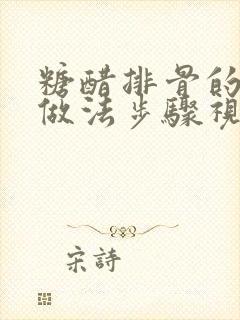 糖醋排骨的
做法步驟視
宋詩